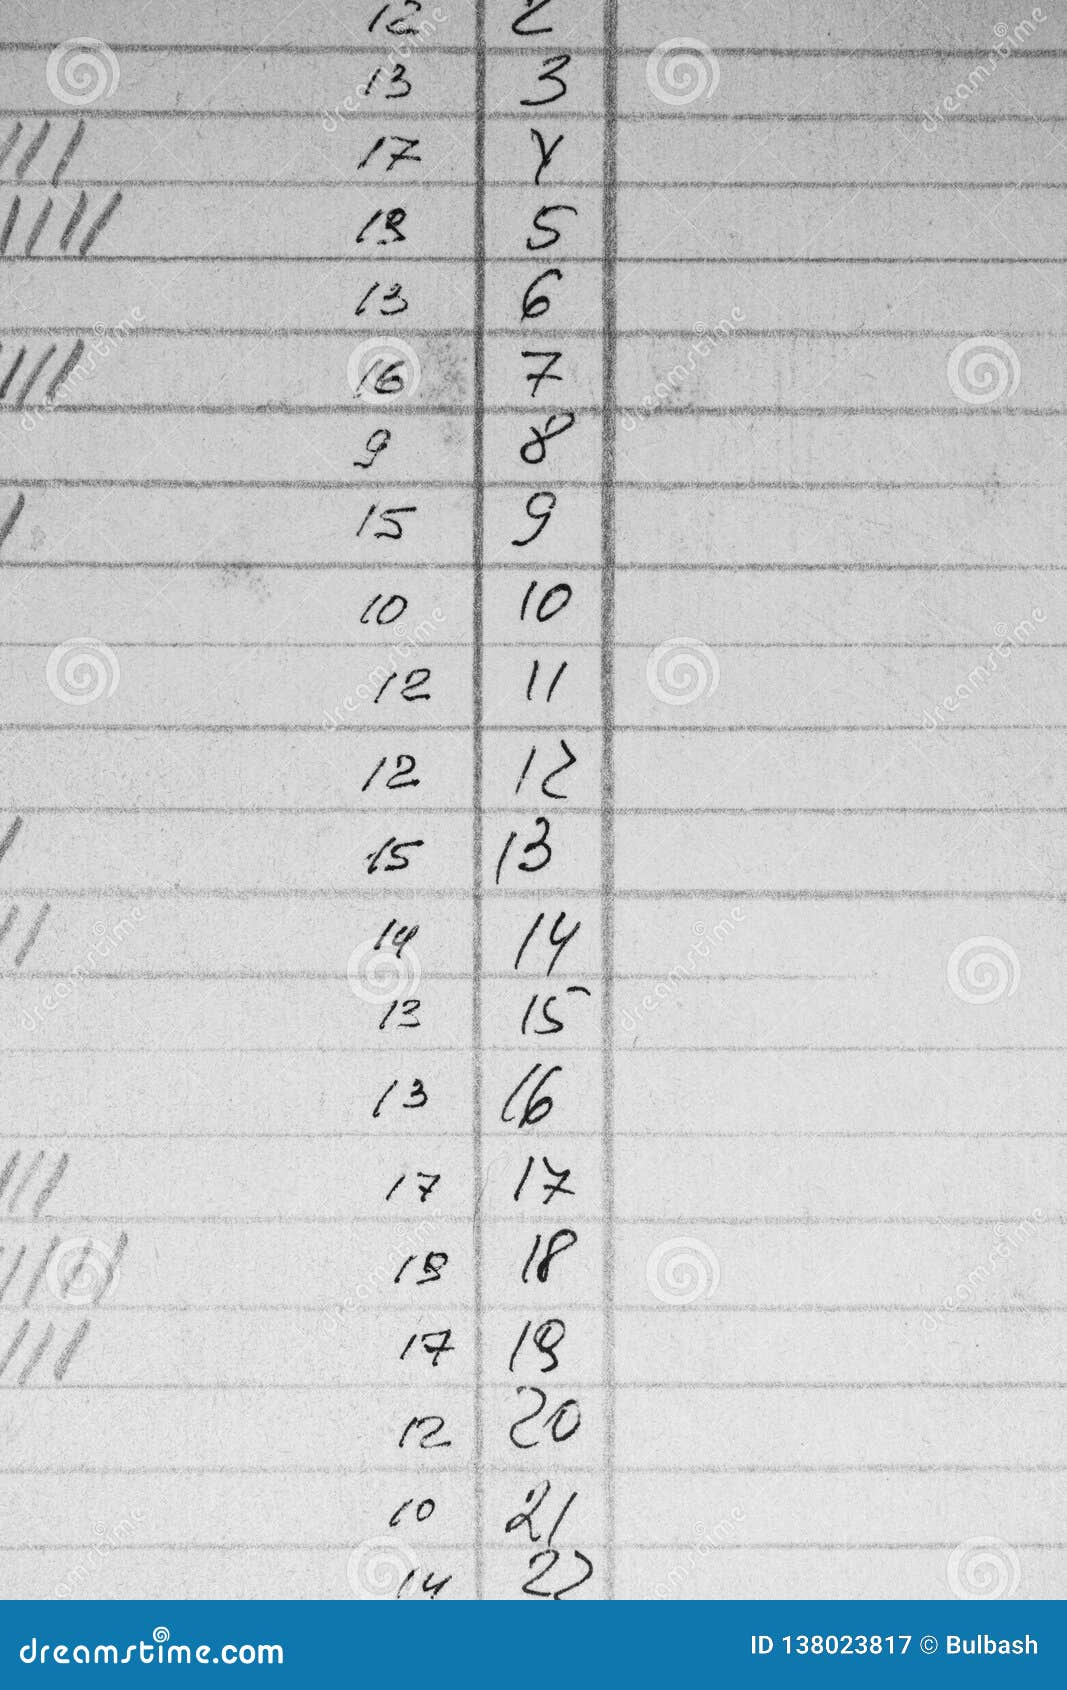 12 2
13 3
17 4
19 5
13 6
16 7
9 8
15 9
10 10
12 11
12 12
15 13
14 14
13 15
13 16
17 17
19 18
17 19
12 20
10 21
14 22
dreamstime.com ID 138023817 © Bulbash